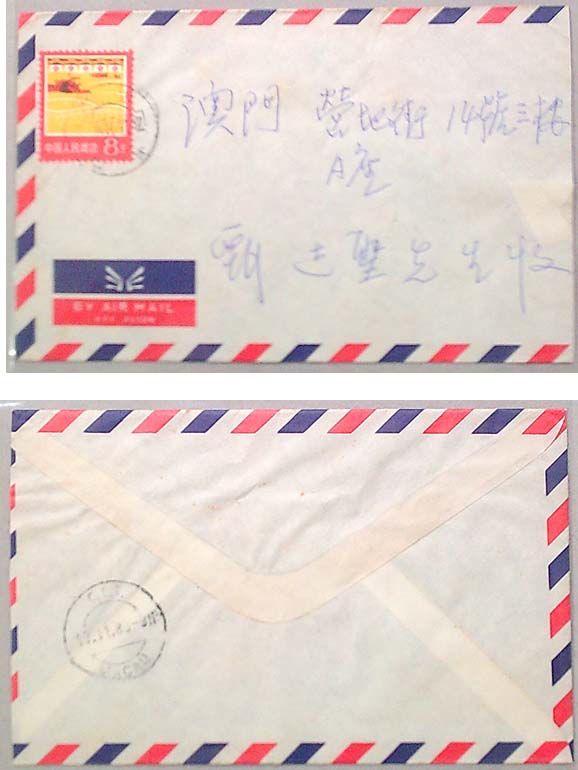 中国人民邮政 8分
澳門 營地街 14號三樓
A座
甄 達聖先生收
BY AIR MAIL
PAR AVION
MACAU